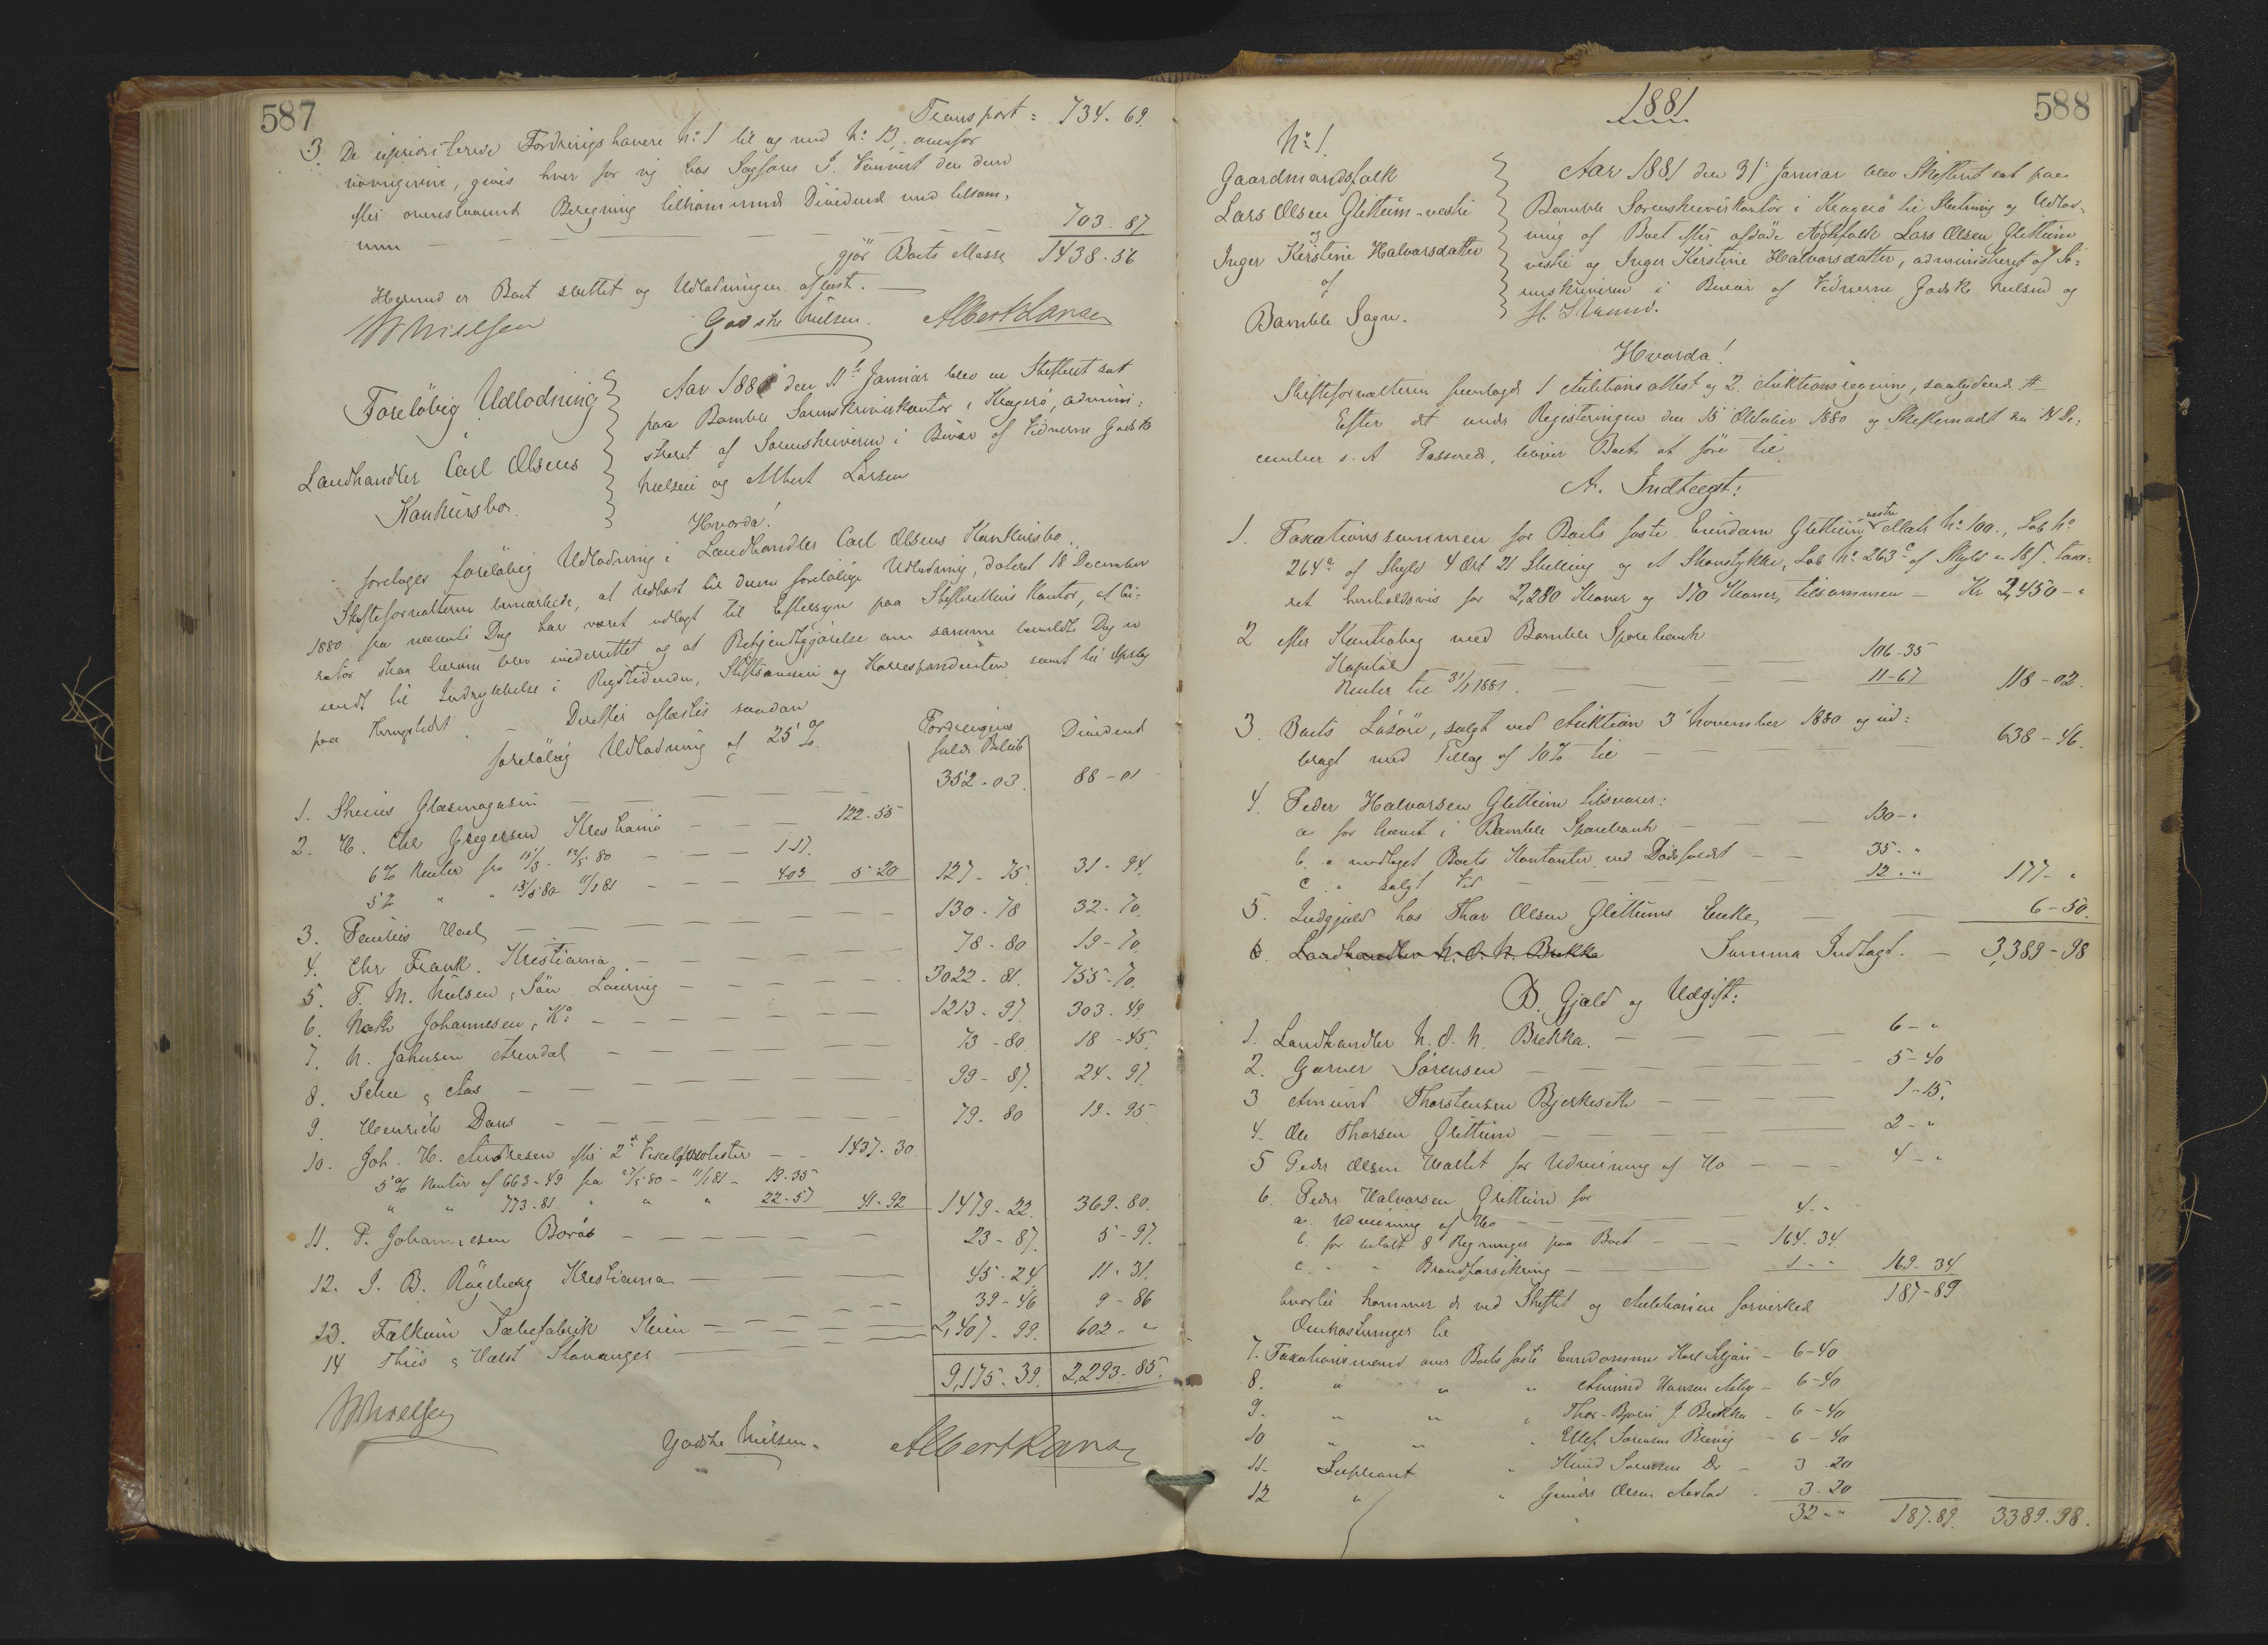 587
Transport = 734. 69.
3. De uprioriterede Fordringshavere No 1 til og med No 13 ovenfor
, gives hver for sig hos Sagfører den dem
efter ovenstaaende Beregning tilkommende Dividende med tilsam-
men — — — 703. 87
gjør Boets Masse 1438-56
Hermed er Boet sluttet og Udlodningen aflæst. —
WNielsen Godske Nielsen. Albert Larsen
Foreløbig Udlodning
i
Landhandler Carl Olsens
Konkursbo.
Aar 1881 den 11te Januar blev en Skifteret sat
paa Bamble Sorenskriverkontor i Kragerø, admini-
streret af Sorenskriveren i Bivær af Vidnerne Godske
Nielsen og Albert Larsen
Hvorda!
foretages foreløbig Udlodning i Landhandler Carl Olsens Konkursbo.
Skifteforvalteren bemærkede, at Udkast til denne foreløbige Udlodning, dateret 18 December
1880 fra nævnte Dag har været udlagt til Eftersyn paa Skifterettens Kontor, at Cu-
rator strax herom blev underrettet og at Bekjendtgjørelse om samme bemeldte Dag er
sendt til Indrykkelse i Rigstidenden, Skiftsavisen og Korrespondenten samt til Opslag
paa Thinghuset. Derefter aflæstes saadan
foreløbig Udlodning af 25%.
Fordringens fulde Beløb Dividend
1. Skiens Glasmagasin — — — 352-03. 88-01
2. H. Chr Gregersen Kristiania — — 122-55
6% Renter fra 15/3 - 12/5 80 — — 1-17.
5% " " 13/5 80 - 11/1 81 — — 403 5-20 127-75. 31-94.
3. — — — 130-78 32-70.
4. Chr Frank. Kristiania — — 78-80 19-70.
5. F. M. Nielsen & Søn — — 3022-81. 755-70.
6. Johannesen, Ko: — — 1213-97. 303-49.
7. N. Johnsen Arendal — — 73-80. 18-45.
8. & Aas — — 99-87. 24-97.
9. Henrich Dons — — 79-80 19-95
10. Joh. H. Andresen efter 2de — 1437-30.
5% Renter af 663-49 fra 27/5 80 - 11/1 81 - 19-35
" " 773-81 " " " 22-57 41-92 1479-22. 369-80.
11. P. Johannesen Borøs — — 23-87. 5-97.
12. J. B. Kristiania — 45-24. 11-31.
39-46 9-86
13. Falkum Sæbefabrik Skien — — 2,407-99. 602-"
14 Thiis & Stavanger — —
9,175-39. 2,293-85.
WNielsen Godske Nielsen. Albert Larsen
588
1881
No 1.
Gaardmandsfolk
Lars Olsen Glittum-vestre
og
Inger Kirstine Halvorsdatter
af
Bamble Sogn.
Aar 1881 den 31te Januar blev Skifteret sat paa
Bamble Sorenskriverkontor i Kragerø til Slutning og Udlod-
ning af Boet efter afdøde Ægtefolk Lars Olsen Glittum
vestre og Inger Kirstine Halvorsdatter, administreret af So-
renskriveren i Bivær af Vidnerne Godske Nielsen og
H.
Hvorda!
Skifteforvalteren fremlagde 1 Auktions og 2 Auktionsregning, saalydende #
Efter det under Registeringen den 15 Oktober 1880 og Skiftemødet den De-
cember s. A. Passerede, bliver Boets at føre til
A. Indtægt:
1. Taxationssummen for Boets faste Eiendom Glittum vestre Matr. No 100., Løb No
264a af Skyld 4 Ort 21 Skilling og et Skovstykke, Løb No 263c af Skyld 18 ß. taxe-
ret henholdsvis for 2,280 Kroner og 170 Kroner, tilsammen — Kr 2,450-"
2 efter Kontrabog med Bamble Sparebank
Kapital — — 106-35
Renter til 31/1 1881. — — 11-67 118-02.
3. Boets Løsøre, solgt ved Auktion 3die November 1880 og ud-
bragt med Tillæg af 10% til — — 638-46.
4. Peder Halvorsen Glittum tilsvarer:
a for hævet i Bamble Sparebank — — 130-"
b. " modtaget Boets Kontanter ved Dødsfaldet — — 35-"
c. " solgt Ved — — 12-" 177-"
5. Indgjæld hos Thor Olsen Glittums Enke, — — 6-50.
6. Landhandler N. O. N. Brekka Summa Indtægt. — 3,389-98
B. Gjæld og Udgift:
1. Landhandler N. O. N. Brekka. — — 6-"
2. Garver Sørensen — — 5-40
3 Amund Thorstensen Bjerkeseth — — 1-15.
4. Ole Thorsen Glittum — — 2-"
5 Peder Olsen for Udvisning af Ho — — 4-"
6. Peder Halvorsen Glittum for
a. Udvisning af Ho — — 4-"
b. for betalt 8 Regninger paa Boet — — 164-34
c. " " Brandforsikring — — 1-" 169-34
187-89
hvortil kommer de ved Skiftet og Auktionen forvirkede
Omkostninger til
7. Taxationsmænd over Boets faste Eiendomme — 6-40
8. " " " Amund Hansen — 6-40
9. " " " Thor Bjørn J Brekka — 6-40
10 " " " Ellef Sørensen — 6-40
11. Supleant " Knud Sørensen Do — 3-20
12 " " Gunder Olsen — 3-20
32-" 187-89. 3389-98.